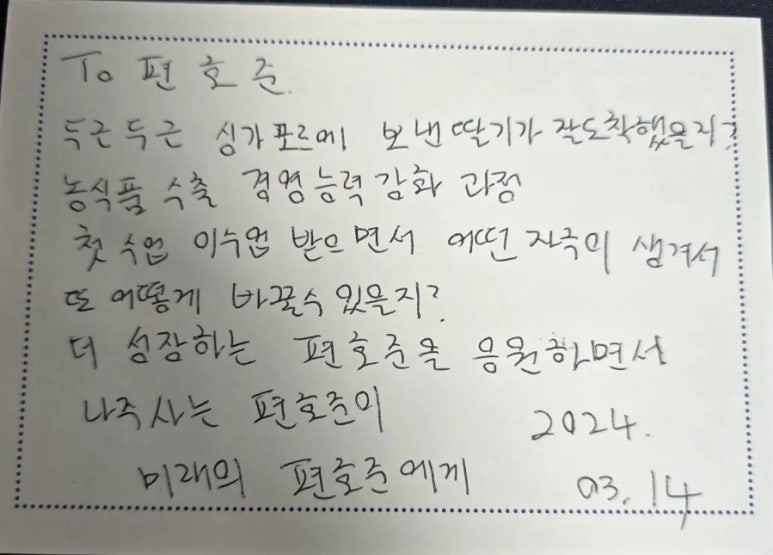 To 편호준.
두근두근 싱가포르에 보낸 딸기가 잘도착했을지?
농식품 수출 경영능력강화 과정
첫 수업 이수업 받으면서 어떤 자극이 생겨서
또 어떻게 바꿀수 있을지?
더 성장하는 편호준을 응원하면서
나주사는 편호준이 2024.
미래의 편호준에게 03.14